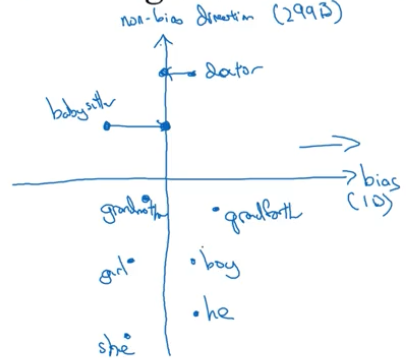 non-bias direction (299D)
doctor
babysitter
bias
(1D)
grandmoth
grandfarth
girl
boy
he
she